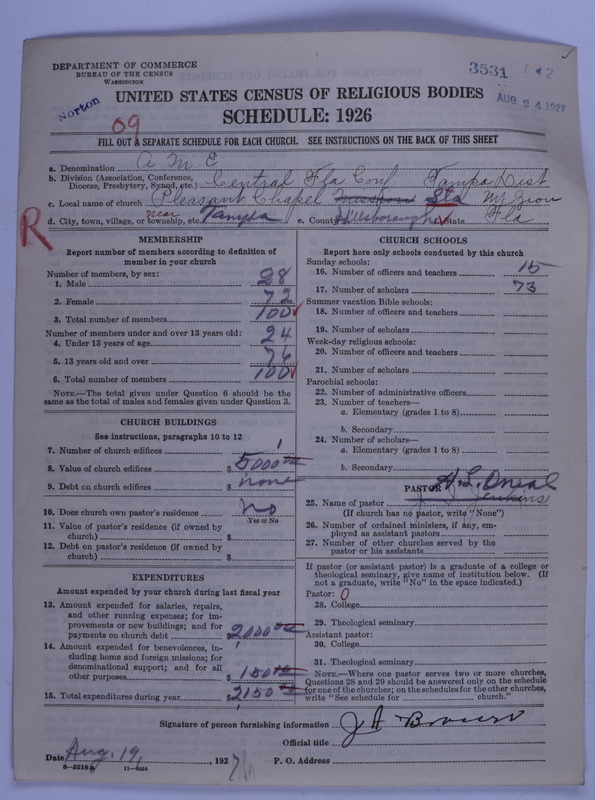 DEPARTMENT OF COMMERCE
BUREAU OF THE CENSUS
WASHINGTON
3531
AUG 24 1927
Norton
UNITED STATES CENSUS OF RELIGIOUS BODIES
SCHEDULE: 1926
09
FILL OUT A SEPARATE SCHEDULE FOR EACH CHURCH. SEE INSTRUCTIONS ON THE BACK OF THIS SHEET
a. Denomination A M E
b. Division (Association, Conference, Diocese, Presbytery, Synod, etc.) Central Fla Conf Tampa Dist
c. Local name of church Pleasant Chapel Sta Mt Zion
d. City, town, village, or township, etc. near Tampa e. County Hillsborough f. State Fla
R
MEMBERSHIP
Report number of members according to definition of
member in your church
Number of members, by sex:
1. Male 28
2. Female 72
3. Total number of members 100
Number of members under and over 13 years old:
4. Under 13 years of age 24
5. 13 years old and over 76
6. Total number of members 100
NOTE.—The total given under Question 6 should be the
same as the total of males and females given under Question 3.
CHURCH BUILDINGS
See instructions, paragraphs 10 to 12
7. Number of church edifices 1
8. Value of church edifices $ 5000 00
9. Debt on church edifices $ none
10. Does church own pastor's residence No
Yes or No
11. Value of pastor's residence (if owned by
church) $
12. Debt on pastor's residence (if owned by
church) $
EXPENDITURES
Amount expended by your church during last fiscal year
13. Amount expended for salaries, repairs,
and other running expenses; for im-
provements or new buildings; and for
payments on church debt 2000 00
14. Amount expended for benevolences, in-
cluding home and foreign missions; for
denominational support; and for all
other purposes $ 150 00
15. Total expenditures during year $ 2150 00
CHURCH SCHOOLS
Report here only schools conducted by this church
Sunday schools:
16. Number of officers and teachers 15
17. Number of scholars 73
Summer vacation Bible schools:
18. Number of officers and teachers
19. Number of scholars
Week-day religious schools:
20. Number of officers and teachers
21. Number of scholars
Parochial schools:
22. Number of administrative officers
23. Number of teachers—
a. Elementary (grades 1 to 8)
b. Secondary
24. Number of scholars—
a. Elementary (grades 1 to 8)
b. Secondary
PASTOR H. L. Oneal
25. Name of pastor Jenkins
(If church has no pastor, write "None")
26. Number of ordained ministers, if any, em-
ployed as assistant pastors
27. Number of other churches served by the
pastor or his assistants
If pastor (or assistant pastor) is a graduate of a college or
theological seminary, give name of institution below. (If
not a graduate, write "No" in the space indicated.)
Pastor: 0
28. College
29. Theological seminary
Assistant pastor:
30. College
31. Theological seminary
NOTE.—Where one pastor serves two or more churches,
Questions 28 and 29 should be answered only on the schedule
for one of the churches; on the schedules for the other churches,
write "See schedule for church."
Signature of person furnishing information J A
Official title
Date Aug. 19, 1927 P. O. Address
8—5518 11—8024